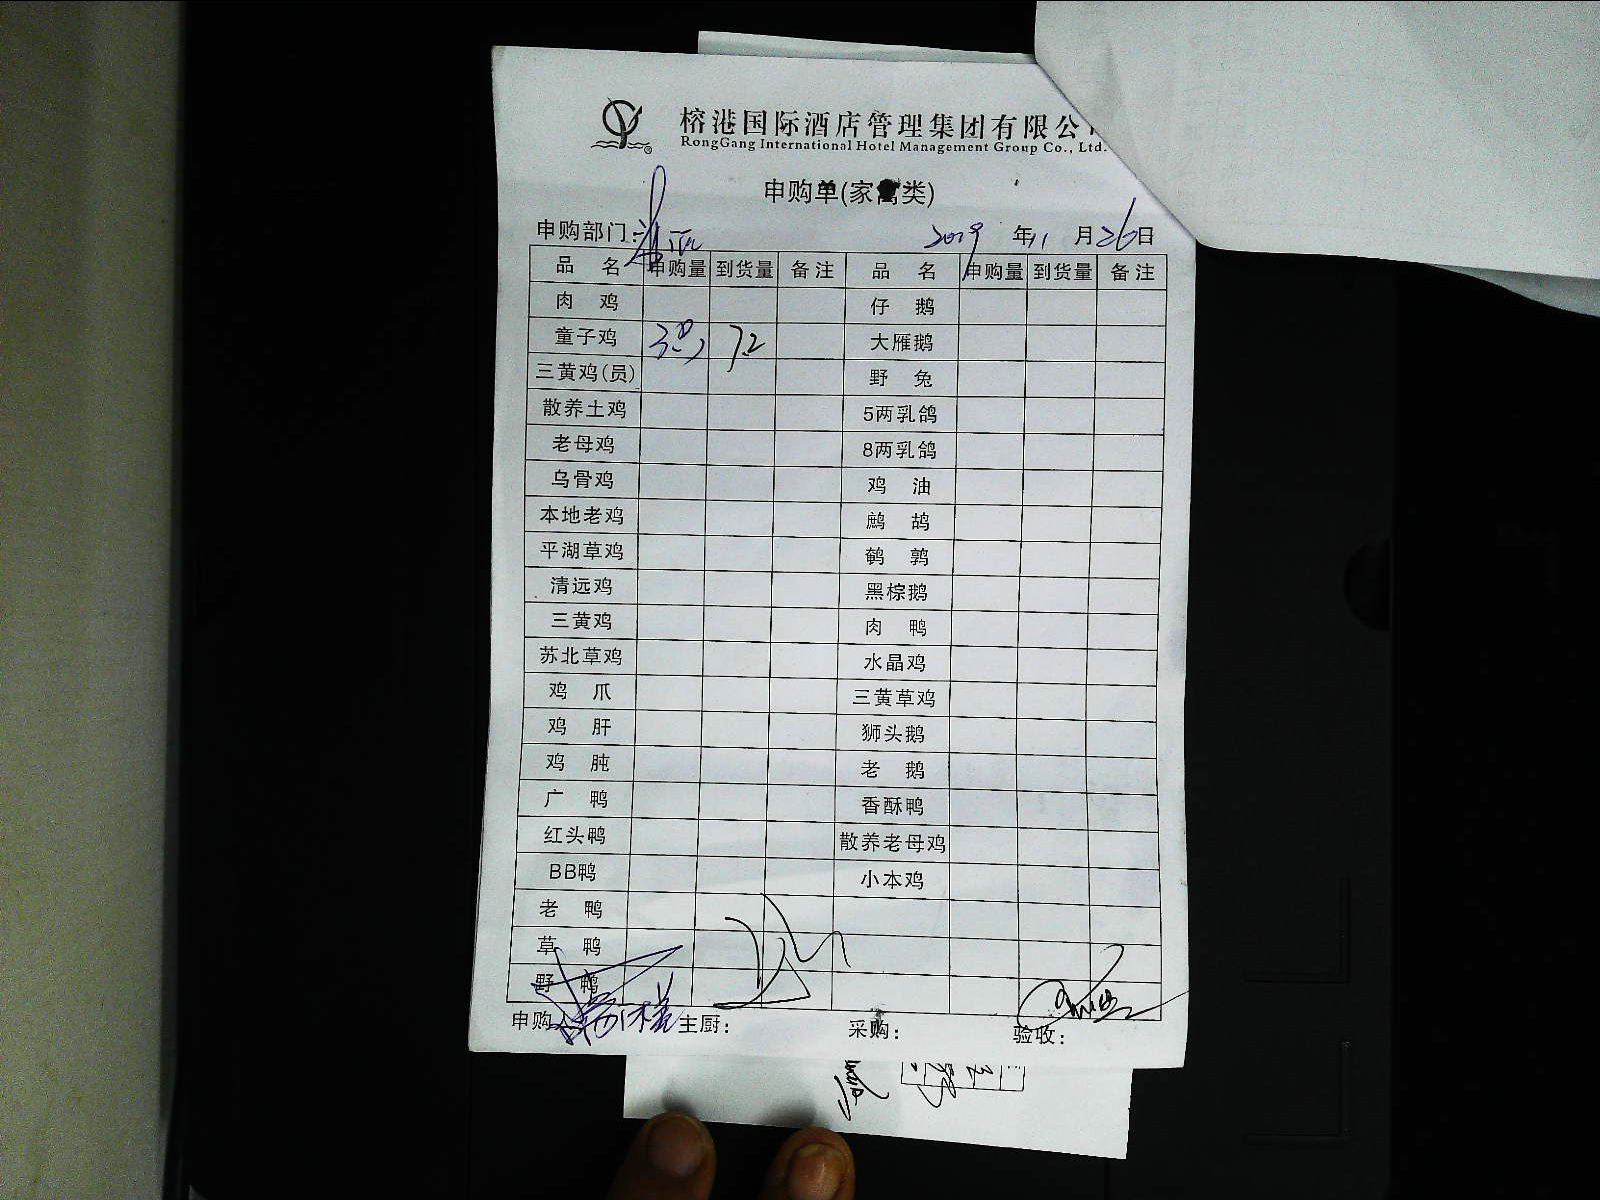 榕港国际酒店管理集团有限公
RongGang International Hotel Management Group Co., Ltd.
申购单(家禽类)
申购部门: 2019 年 11 月 26 日
品 名 申购量 到货量 备注 品 名 申购量 到货量 备注
肉 鸡 仔 鹅
童子鸡 3只 7.2 大雁鹅
三黄鸡(员) 野 兔
散养土鸡 5两乳鸽
老母鸡 8两乳鸽
乌骨鸡 鸡 油
本地老鸡 鹧 鸪
平湖草鸡 鹌 鹑
清远鸡 黑棕鹅
三黄鸡 肉 鸭
苏北草鸡 水晶鸡
鸡 爪 三黄草鸡
鸡 肝 狮头鹅
鸡 肫 老 鹅
广 鸭 香酥鸭
红头鸭 散养老母鸡
BB鸭 小本鸡
老 鸭
草 鸭
野 鸭
申购人 主厨: 采购: 验收: